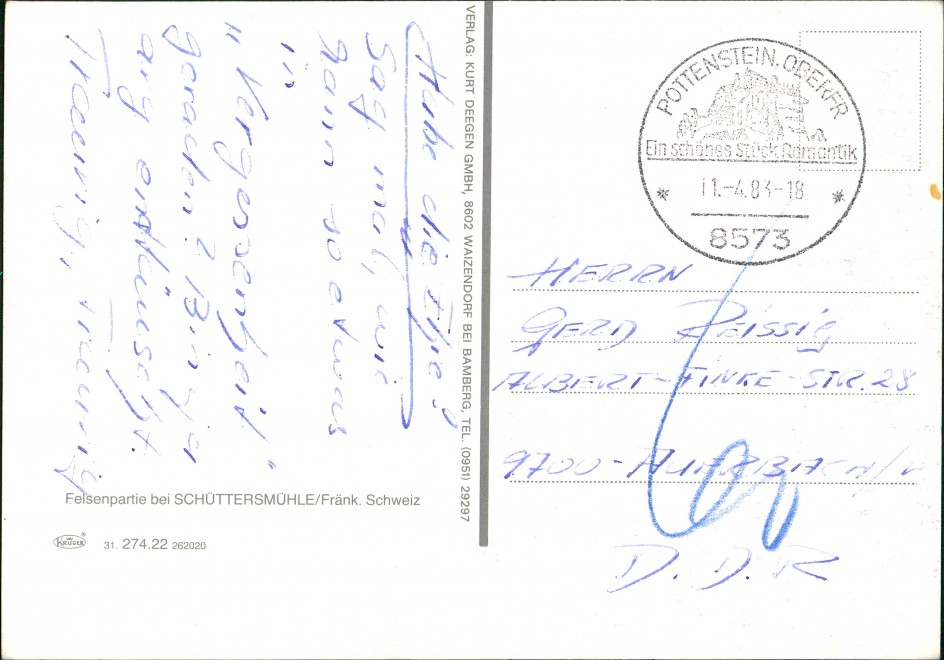 Habe die Ehre!
Sag mal, wie
kann so etwas
in
"Vergessenheit"
geraten? Bin ja
arg enttäuscht.
Traurig, traurig
VERLAG: KURT DEEGEN GMBH, 8602 WAIZENDORF BEI BAMBERG, TEL. (0951) 29297
Felsenpartie bei SCHÜTTERSMÜHLE/Fränk. Schweiz
KRÜGER
31. 274.22 262020
POTTENSTEIN, OBERFR
Ein schönes Stück Romantik
11.-4.84-18
8573
HERRN
GERD REISSIG
ALBERT-FINKE-STR. 28
9700-AUERBACH/V
D.D.R